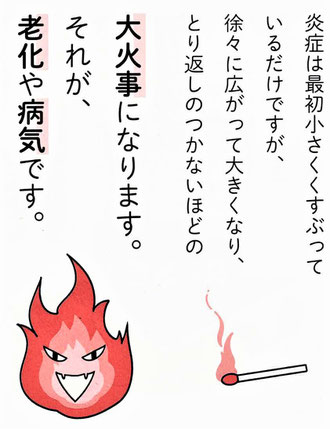 炎症は最初小さくくすぶって
いるだけですが、
徐々に広がって大きくなり、
とり返しのつかないほどの
大火事になります。
それが、
老化や病気です。